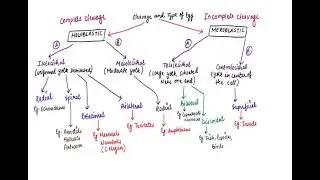 Complete Cleavage
Cleavage and Type of Egg
Incomplete Cleavage
HOLOBLASTIC
MEROBLASTIC
A
B
A
B
Isolecithal
(Uniformal yolk distributed)
Mesolecithal
(Moderate yolk)
Telolecithal
(Large yolk situated
near one end)
Centrolecithal
(yolk in center of
the cell)
Radial
Spiral
Rotational
Bilateral
Radial
Bilateral
Discoidal
Superficial
Eg: Echinoderms
Eg: Annelids
Molluscs
Flatworm
Eg: Mammals
Nematodes
(C. elegans)
Eg: Tunicates
Eg: Amphibians
Eg: Cephalopods
Molluscs
Eg: Fish, Reptiles,
Birds
Eg: Insects